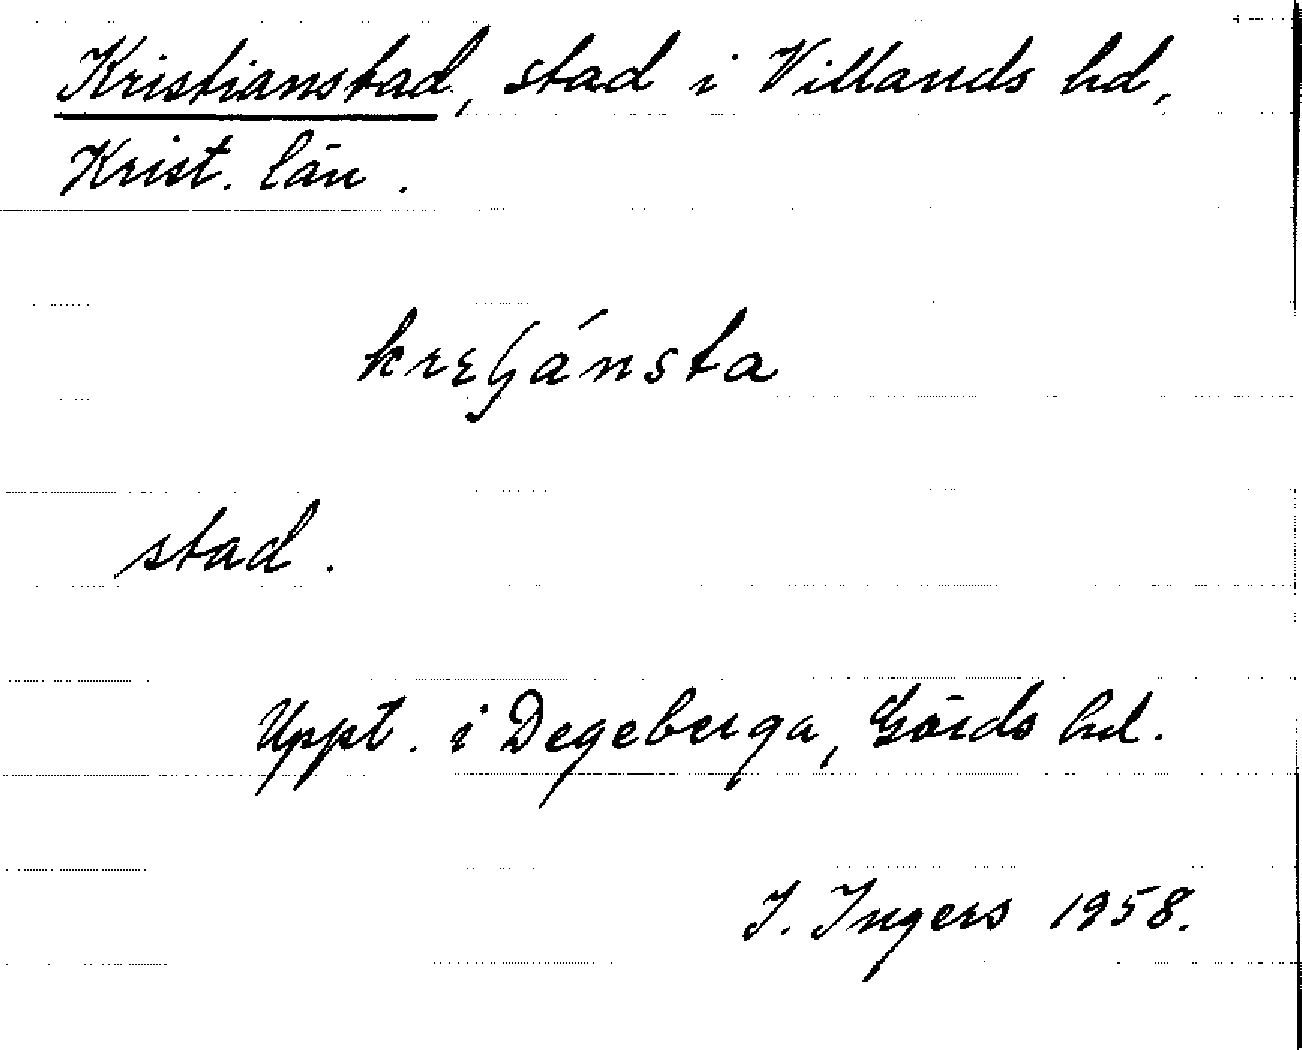 Kristianstad, stad i Villands hd,
Krist. län.
krɛʃánsta
stad.
Uppt. i Degeberga, Gärds hd.
I. Ingers 1958.